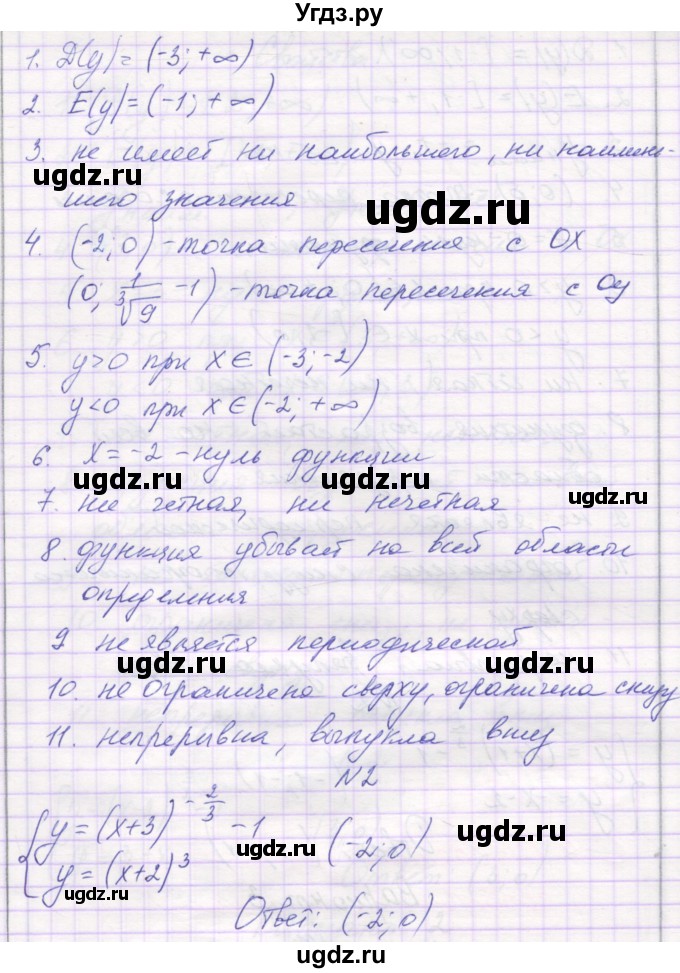 Угдз.ру
1. D(y)=(-3; +∞)
2. E(y)=(-1; +∞)
3. не имеет ни наибольшего, ни наимень-
ugdz.ru
шего значения
ugdz.ru
4. (-2; 0) - точка пересечения с OX
(0; 1/∛9 -1) - точка пересечения с Oy
ugdz.ru
ugdz.ru
5. y>0 при x∈(-3;-2)
y<0 при x∈(-2; +∞)
6. x=-2 - нуль функции
ugdz.ru
ugdz.ru
7. ни четная, ни нечетная
ugdz.ru
8. функция убывает на всей области
определения
9 не является периодической
ugdz.ru
ugdz.ru
10. не ограничена сверху, ограничена снизу
11. непрерывна, выпукла вниз
ugdz.ru
N2
y=(x+3)^(-2/3) -1
(-2;0)
ugdz.ru
ugdz.ru
y=(x+2)^3
ugdz.ru
Ответ: (-2;0)
ugdz.ru